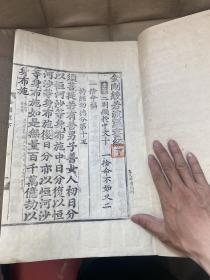 金剛經若波羅蜜經
二別顯持中文
一捨命福
一捨命不如又二
持經功德分第十五
須菩提若有善男子善女人初日分
以恒河沙等身布施中日分復以恒
河沙等身布施後日分亦以恒河沙
等身布施如是無量百千萬億劫以
身布施